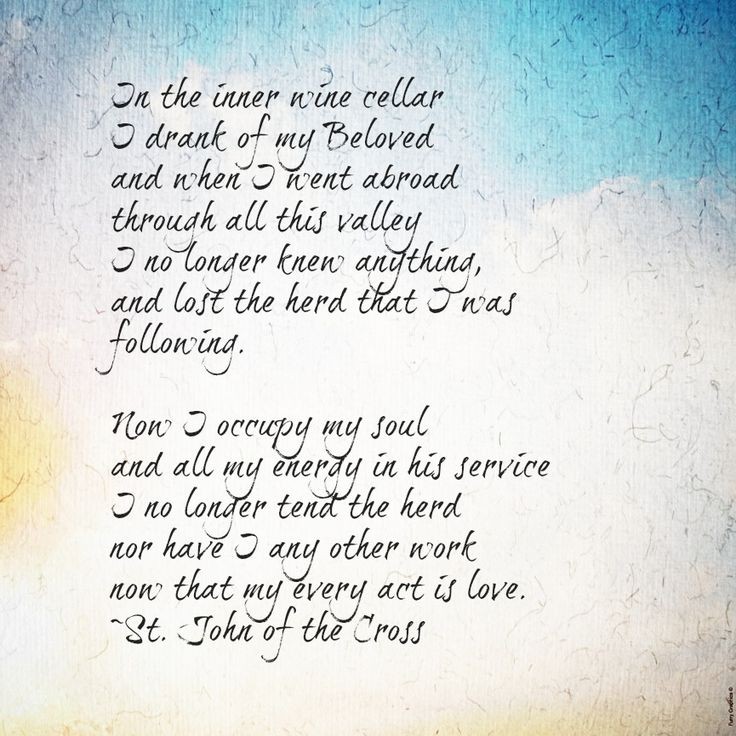 In the inner wine cellar
I drank of my Beloved
and when I went abroad
through all this valley
I no longer knew anything,
and lost the herd that I was
following.

Now I occupy my soul
and all my energy in his service
I no longer tend the herd
nor have I any other work
now that my every act is love.
~St. John of the Cross